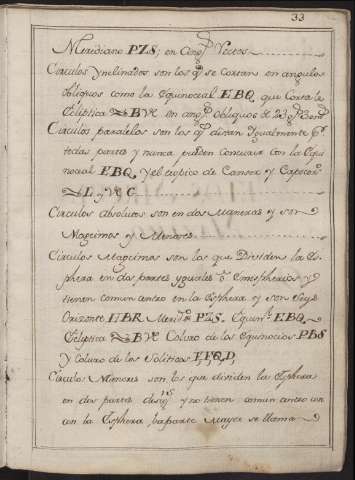 33
Meridiano PZS; en Angs Rectos
Circulos Ynclinados son los qe se cortan en angulos
obliquos como la Equinocial EBQ, que Corta la
Ecliptica B en angs obliquos de 23 gs
Circulos paralelos son los qe distan Igualmente Pr
todas partes y nunca pueden concurir con la Equi
nocial EBQ y el tropico de Canser y Capricor
L y C
Circulos absolutos son en dos Maneras y son
Magcimos y Menores
Circulos Magcimos son los que Dividen la Es
phera en dos partes yguales ô Emispherios y
tienen comun centro en la Esphera y son Seys
Orizonte HBR Merido PZS. Equinl EBQ,
Ecliptica B Coluro de los Equinocios PBS
Y coluro de los Soliticos
Circulos Menores son los que dividen la Esphera
en dos partes desigs y no tienen comun centro con
con la Esphera la parte mayor se llama